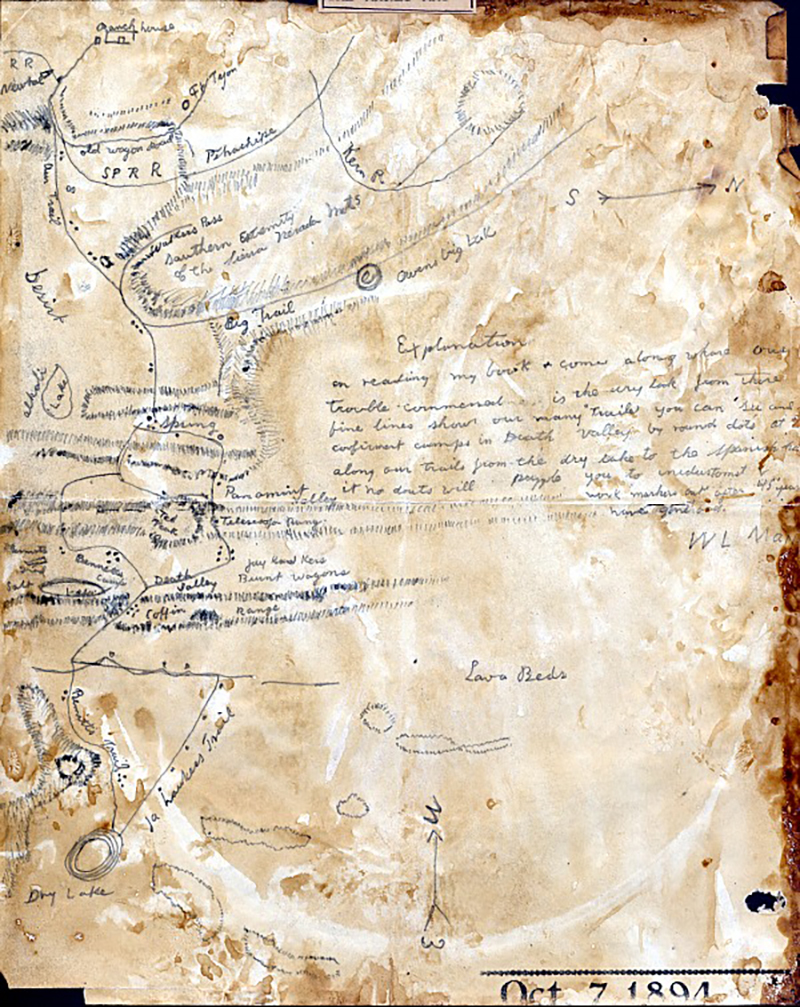 Ranch house
R R
Newhal
Ft Tejon
old wagon road
Tehachipa
S P R R
Kern R.
our Trail
S
N
Walkers Pass
Southern Extremity
of the Sierra Nevada Mts
desirt
Owens big Lak
Big Trail
Explanation
on reading my book & come along whare our
trouble commenced is the dry lak from there
alkali
Lake
fine lines show our many trails you can see our
Spring
camps in Death Valley by round dots at
along our trails from the dry lake to the Spanish
it no douts will puzzle you to understand
Panamint Valley
work markers out after 45 years
Telescope Rang
have gone
W L Ma
Bennetts
Camp
Jay Hawkers
Death
Valley
Burnt Wagons
Salt
Coffin Range
Lava Beds
Bennetts Trail
Ja Hawkers Trail
W
Dry Lake
E
Oct. 7 1894